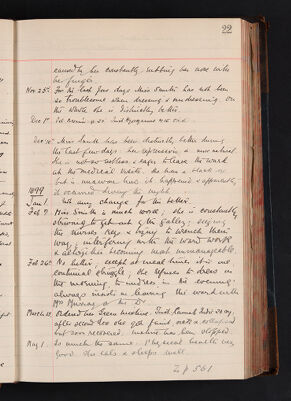 22
caused by her constantly rubbing her nose with
her finger.
Nov 25th. For the last few days Miss Smith has not been
so troublesome when dressing & undressing. On
the whole she is distinctly better.
Dec 1st
Dec 10th Miss Smith has been distinctly better during
the last few days. Her expression is more natural
she is not so restless & eager to leave the ward
at the medical visits. She has a black eye
but is unaware how it happened & apparently
it occurred during the night.
1899
Jan 1. Not any change for the better.
Feb 7. Miss Smith is much worse; she is constantly
striving to get out of the gallery, seizing
the nurses keys & trying to wrench them
away, interfering with the ward work
& altogether becoming most unmanageable.
Feb 26th No better, except at meal times it is one
continual struggle; she refuses to dress in
the morning, to undress in the evening
always insists in leaving the ward with
Mrs Murray or the Dr.
March
after second dose she got faint, cold & collapsed
but soon recovered. Medicine has been stopped
May 1. So much the same. Physical health very
good. She eats & sleeps well.
p 561